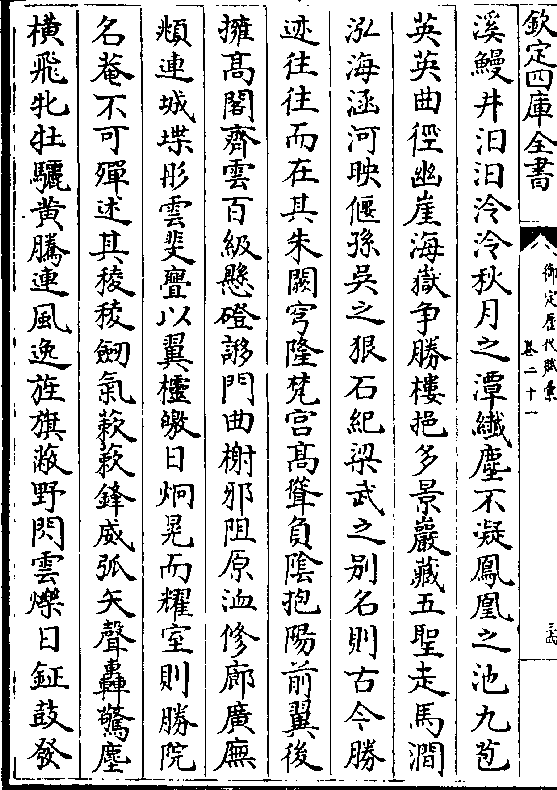 欽定四庫全書
御定歷代賦彙
卷二十一
溪鰻井汩汩泠泠秋月之潭纖塵不凝鳳凰之池九苞
英英曲徑幽崖海嶽争勝樓挹多景巖藏五聖走馬澗
泓海涵河映偃孫吳之狠石紀梁武之别名則古今勝
迹往往而在其朱闕穹隆梵宫髙聳負陰抱陽前翼後
擁髙閣齊雲百級懸磴謻門曲榭邪阻原洫修廊廣廡
頫連城堞彤雲斐亹以翼櫨皦日炯晃而耀室則勝院
名菴不可殫述其稜稜劒氣蔌蔌鋒威弧矢聲轟驚塵
横飛牝牡驪黄騰連風逸旌旗蔽野閃雲爍日鉦鼓發